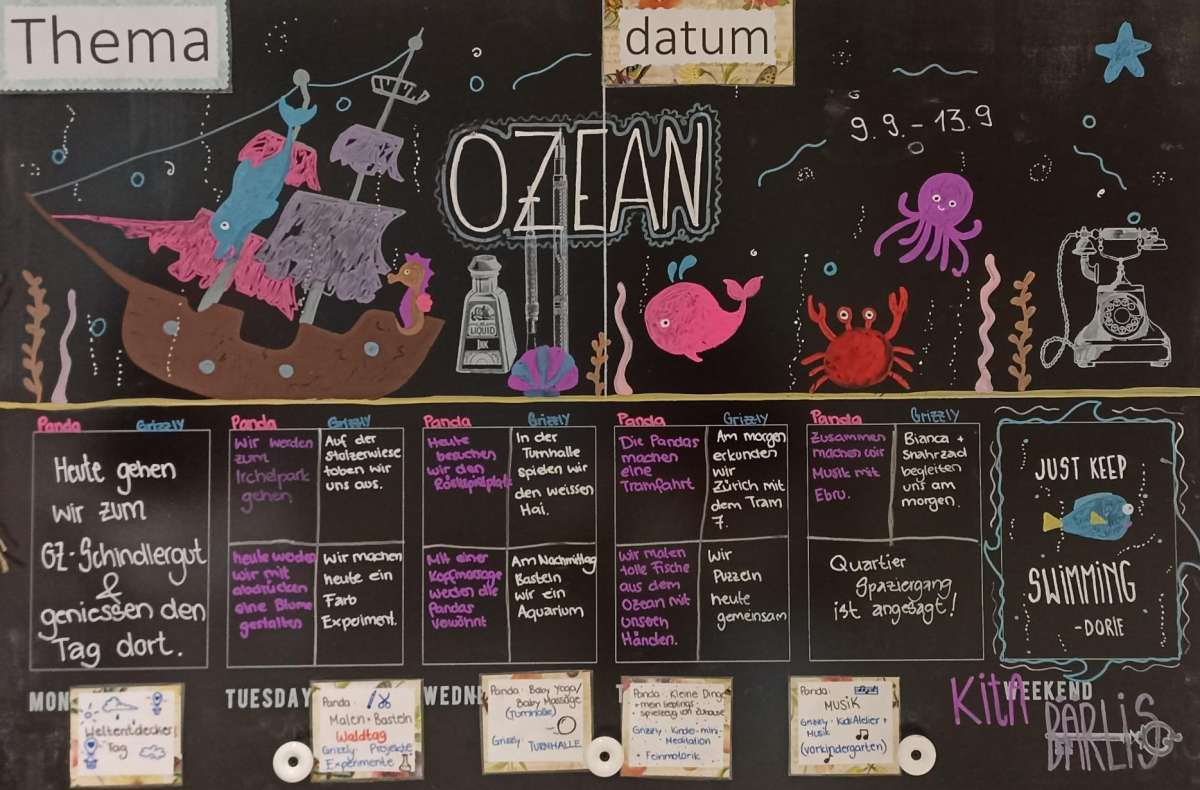 Thema
datum
OZEAN
9.9.-13.9
LIQUID
INK
Panda
Grizzly
Heute gehen
wir zum
GZ-Schindlergut
&
geniessen den
Tag dort.
Panda
Grizzly
Wir werden
zum
Irchelpark
gehen.
Auf der
Stolzerwiese
toben wir
uns aus.
heute
wir mit
abdrücken
eine Blume
gestalten
Wir machen
heute ein
Farb
Experiment.
Panda
Grizzly
Heute
besuchen
wir den
In der
Turnhalle
spielen wir
den weissen
Hai.
Mit einer
Kopfmassage
werden die
Pandas
Am Nachmittag
Basteln
wir ein
Aquarium
Panda
Grizzly
Die Pandas
machen
eine
Tramfahrt
Am morgen
erkunden
wir
Zürich mit
dem Tram
7.
Wir malen
tolle Fische
aus dem
Ozean mit
unseren
Händen.
Wir
Puzzeln
heute
gemeinsam
Panda
Grizzly
Zusammen
machen wir
Musik mit
Ebru.
Bianca +
Shahrzad
begleiten
uns am
morgen.
Quartier
Spaziergang
ist angesagt!
JUST KEEP
SWIMMING
-DORIE
MON
TUESDAY
WEDN
WEEKEND
KitA
BARLiS
Weltentdecker
Tag
Panda:
Malen+Basteln
Waldtag
Grizzly: Projekte
Experimente
Panda: Baby Yoga/
Baby Massage
(Turnhalle)
Grizzly: TURNHALLE
Panda: Kleine Dinge
+ mein lieblings-
+ spielzeug von zuhause
Grizzly: Kinder-mini-
Meditation
+ Feinmotorik
Panda:
MUSIK
Grizzly: KidsAtelier +
Musik
(Vorkindergarten)